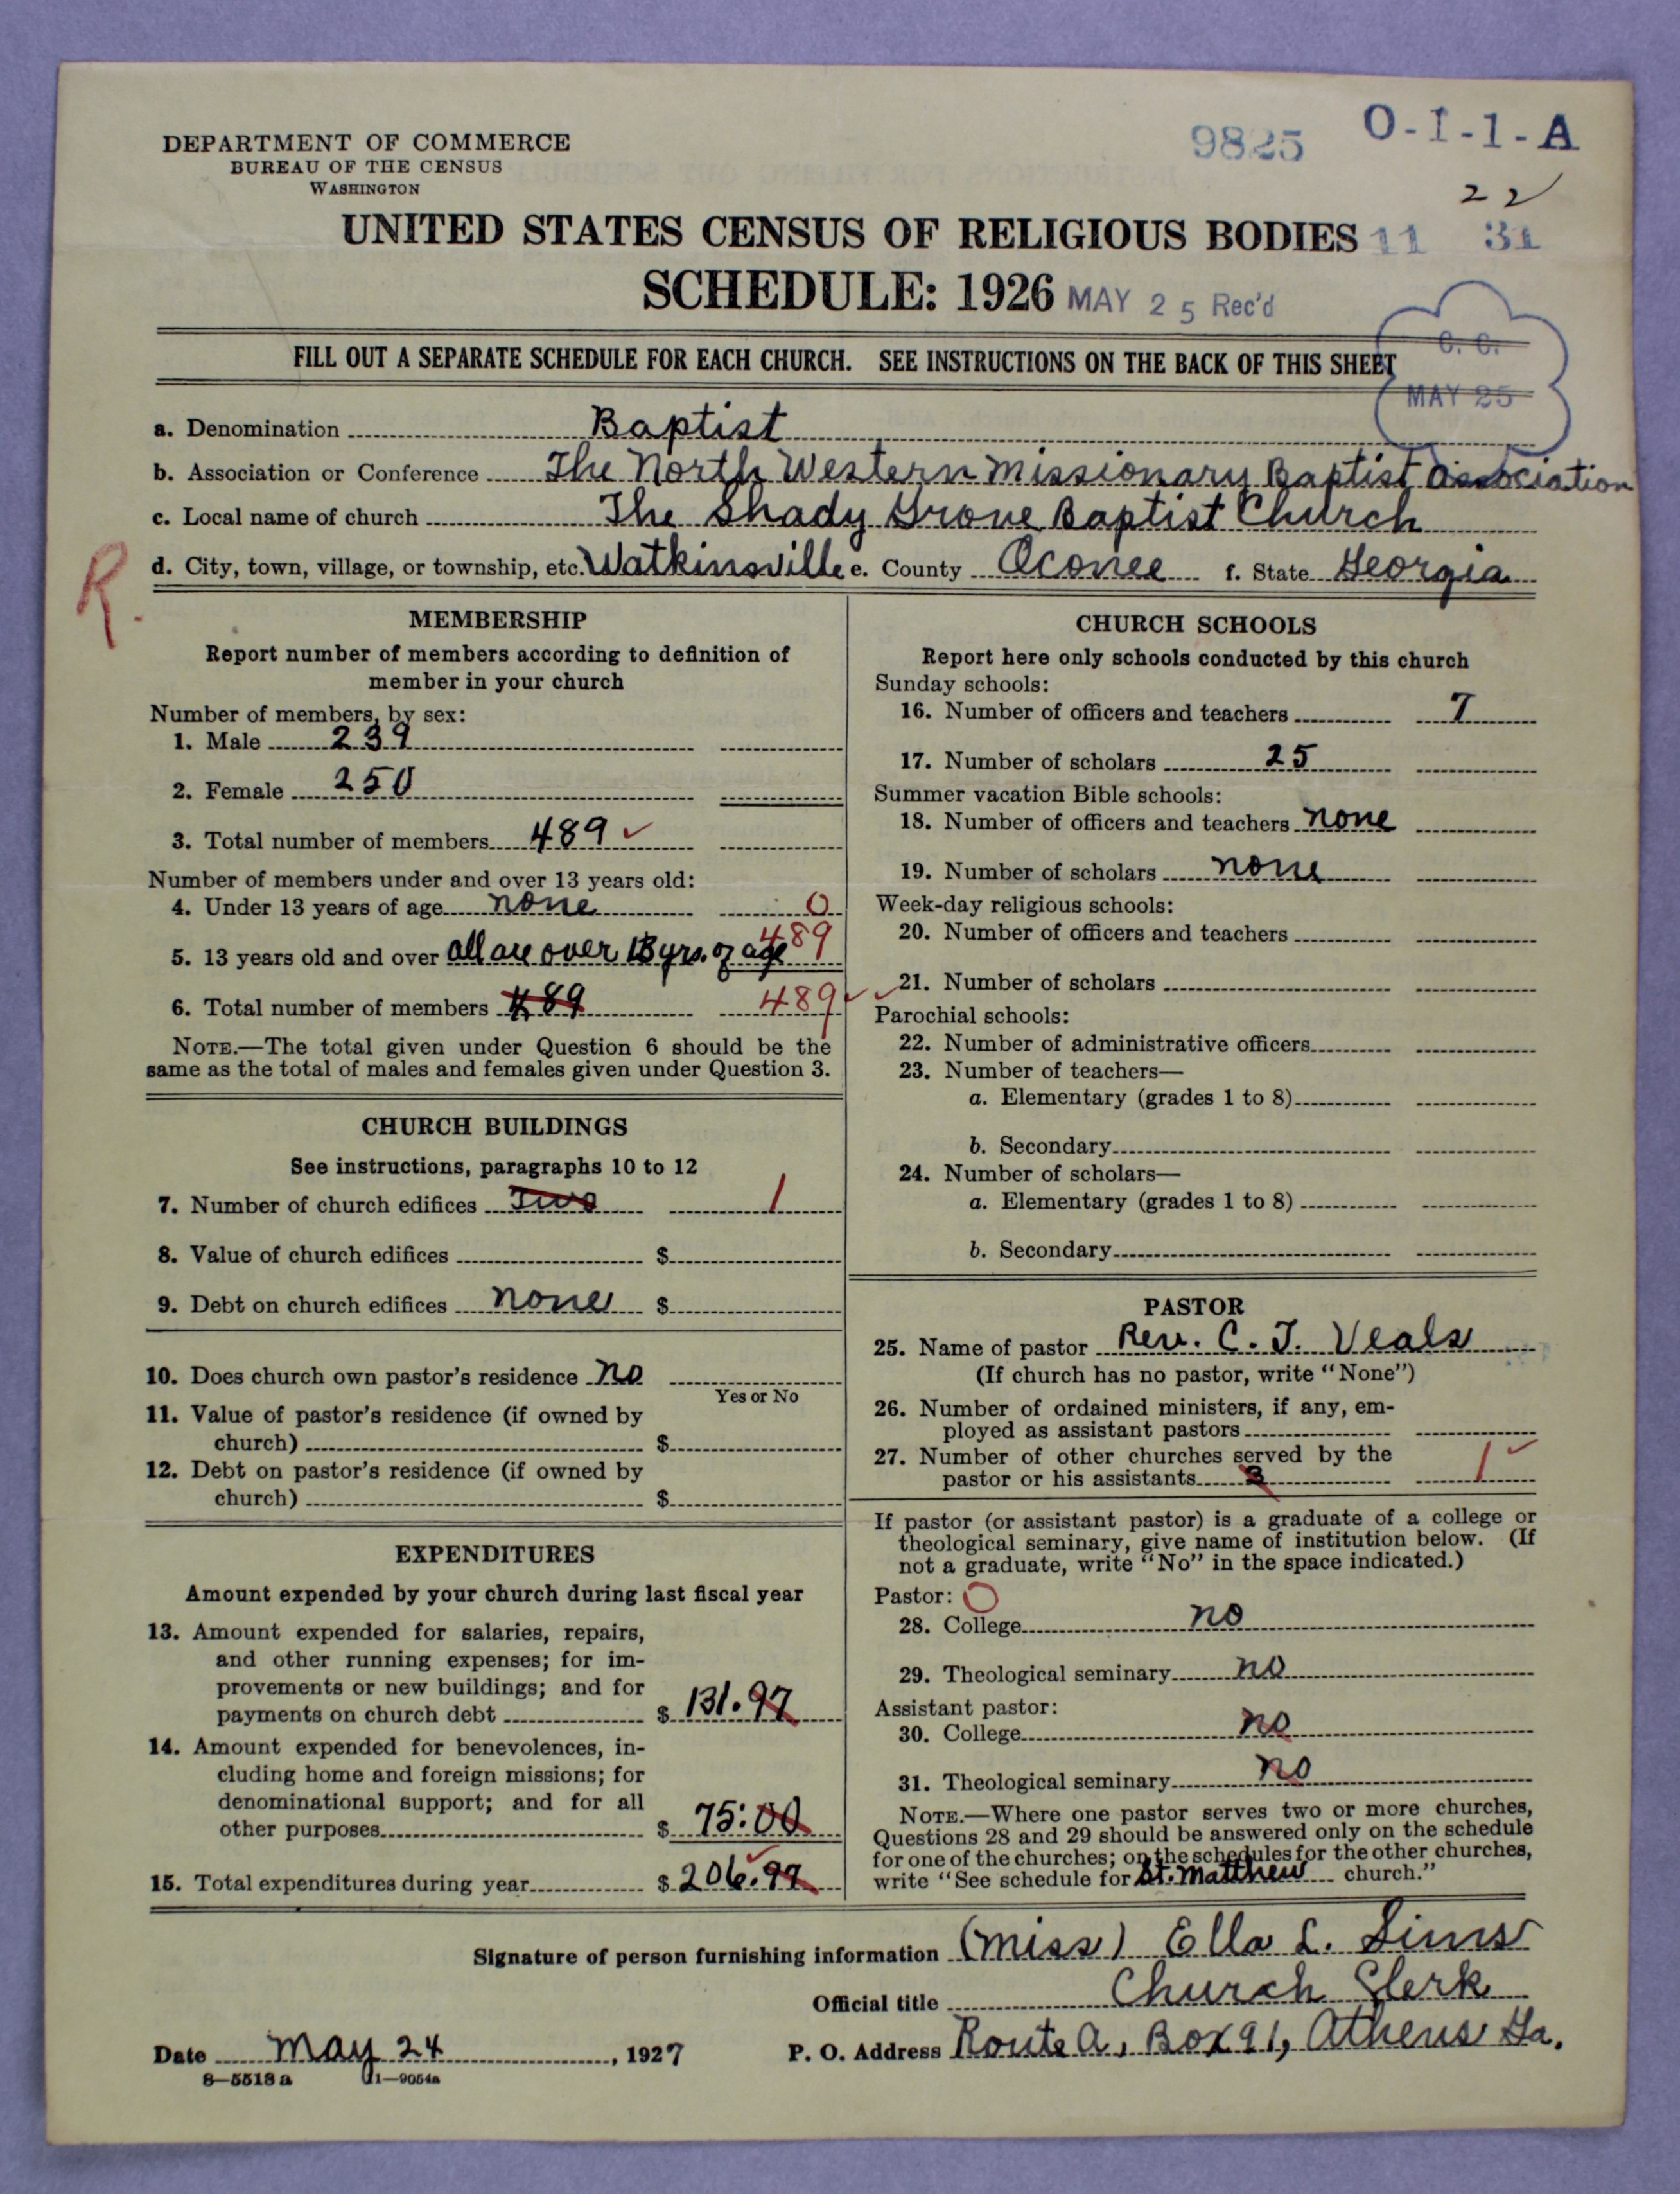 DEPARTMENT OF COMMERCE
BUREAU OF THE CENSUS
WASHINGTON
9825
O-I-1-A
22
UNITED STATES CENSUS OF RELIGIOUS BODIES 11 31
SCHEDULE: 1926 MAY 25 Rec'd
C. C.
MAY 25
FILL OUT A SEPARATE SCHEDULE FOR EACH CHURCH. SEE INSTRUCTIONS ON THE BACK OF THIS SHEET
a. Denomination Baptist
b. Association or Conference The North Western Missionary Baptist Association
c. Local name of church The Shady Grove Baptist Church
R.
d. City, town, village, or township, etc. Watkinsville e. County Oconee f. State Georgia
MEMBERSHIP
Report number of members according to definition of
member in your church
Number of members, by sex:
1. Male 239
2. Female 250
3. Total number of members 489
Number of members under and over 13 years old:
4. Under 13 years of age none 0
5. 13 years old and over all are over 13 yrs. of age 489
6. Total number of members 489 489
NOTE.—The total given under Question 6 should be the
same as the total of males and females given under Question 3.
CHURCH BUILDINGS
See instructions, paragraphs 10 to 12
7. Number of church edifices Two 1
8. Value of church edifices $
9. Debt on church edifices none $
10. Does church own pastor's residence no
Yes or No
11. Value of pastor's residence (if owned by
church) $
12. Debt on pastor's residence (if owned by
church) $
EXPENDITURES
Amount expended by your church during last fiscal year
13. Amount expended for salaries, repairs,
and other running expenses; for im-
provements or new buildings; and for
payments on church debt $ 131.97
14. Amount expended for benevolences, in-
cluding home and foreign missions; for
denominational support; and for all
other purposes $ 75.00
15. Total expenditures during year $ 206.97
CHURCH SCHOOLS
Report here only schools conducted by this church
Sunday schools:
16. Number of officers and teachers 7
17. Number of scholars 25
Summer vacation Bible schools:
18. Number of officers and teachers none
19. Number of scholars none
Week-day religious schools:
20. Number of officers and teachers
21. Number of scholars
Parochial schools:
22. Number of administrative officers
23. Number of teachers—
a. Elementary (grades 1 to 8)
b. Secondary
24. Number of scholars—
a. Elementary (grades 1 to 8)
b. Secondary
PASTOR
25. Name of pastor Rev. C. J. Veals
(If church has no pastor, write "None")
26. Number of ordained ministers, if any, em-
ployed as assistant pastors
27. Number of other churches served by the
pastor or his assistants 3 1
If pastor (or assistant pastor) is a graduate of a college or
theological seminary, give name of institution below. (If
not a graduate, write "No" in the space indicated.)
Pastor: O
28. College no
29. Theological seminary no
Assistant pastor:
30. College no
31. Theological seminary no
NOTE.—Where one pastor serves two or more churches,
Questions 28 and 29 should be answered only on the schedule
for one of the churches; on the schedules for the other churches,
write "See schedule for St. Matthew church."
Signature of person furnishing information (Miss) Ella L. Sims
Official title Church Clerk
Date May 24, 1927 P. O. Address Route A, Box 91, Athens Ga.
8—5518a 11—9054a